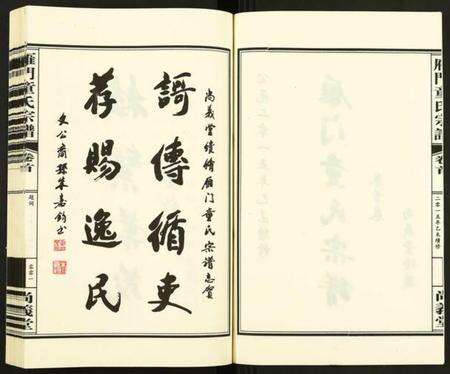 雁門童氏宗譜
卷首
二零一五年乙未續修
尚義堂
尚義堂續修雁门童氏宗谱志贺
謌傳循吏
荐賜逸民
文公裔孫朱嘉
雁門童氏宗譜
卷首
題詞
尚義堂